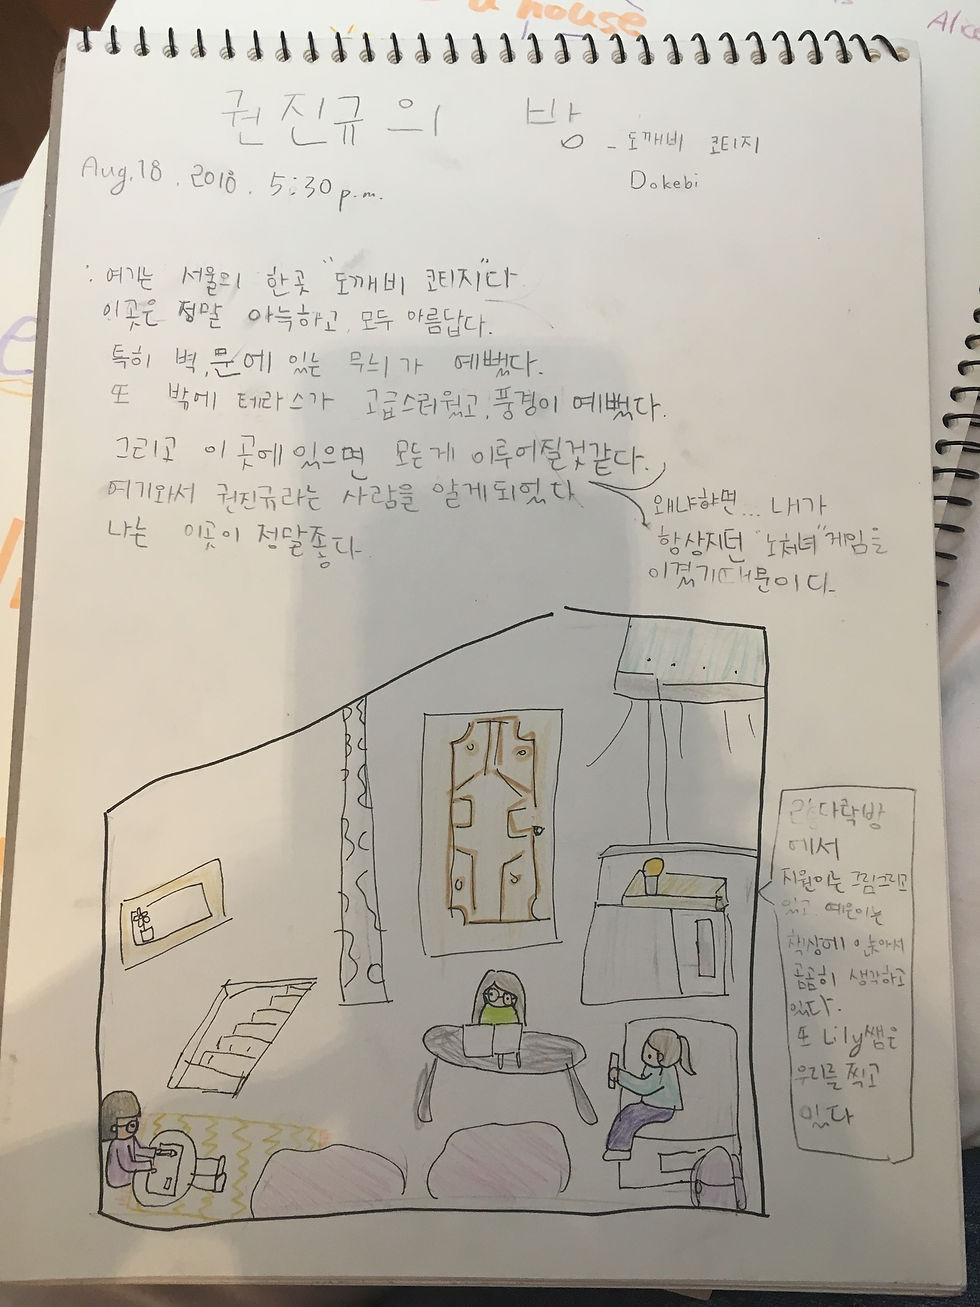 a house
Alice
권진규의 방 - 도깨비 코티지
Dokebi
Aug.18. 2018. 5:30 p.m.
: 여기는 서울의 한곳 "도깨비 코티지"다
이곳은 정말 아늑하고, 모두 아름답다.
특히 벽, 문에 있는 무늬가 예뻤다.
또 밖에 테라스가 고급스러웠고, 풍경이 예뻤다.
그리고 이 곳에 있으면 모든게 이루어질것같다.
여기와서 권진규라는 사람을 알게되었다
나는 이곳이 정말좋다.
왜냐하면... 내가
항상지던 "노처녀"게임을
이겼기때문이다.
다락방
에서
지원이는 그림그리고
있고, 예은이는
책상에 앉아서
곰곰히 생각하고
있다.
또 Lily쌤은
우리를 찍고
있다